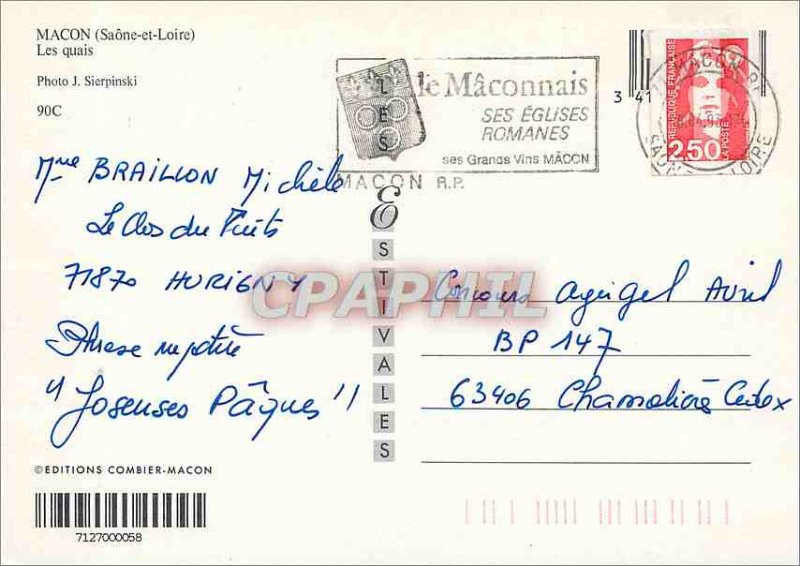 MACON (Saône-et-Loire)
Les quais
Photo J. Sierpinski
90C
le Mâconnais
SES ÉGLISES
ROMANES
ses Grands Vins MÂCON
MACON R.P.
3 41
RÉPUBLIQUE FRANÇAISE
2,50
LA POSTE
MACON RP
SAONE LOIRE
LES
ESTIVALES
Mme BRAILLON Michèle
Le Clos du Puits
71870 HURIGNY
Phrase mystère
"Joseuses Pâques"
Concours Apigel Avril
BP 147
63406 Chamalières Cedex
CPAPHIL
©EDITIONS COMBIER-MACON
7127000058